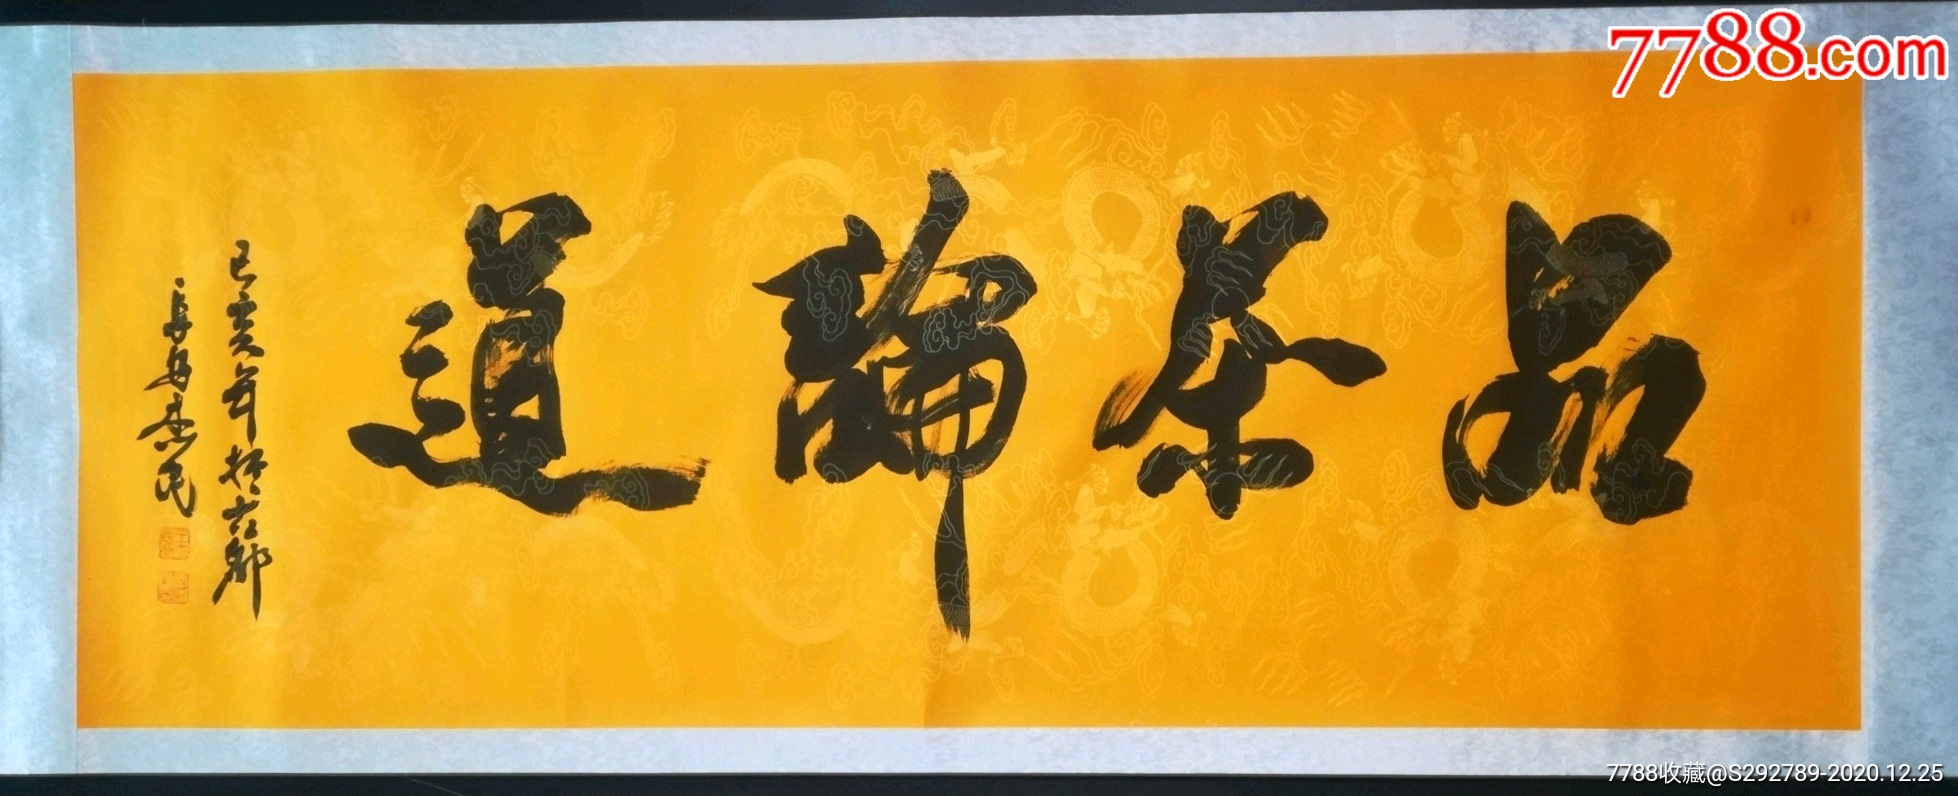 7788.com
品茶論道
己亥年於古都
長安志民
7788收藏@S292789-2020.12.25